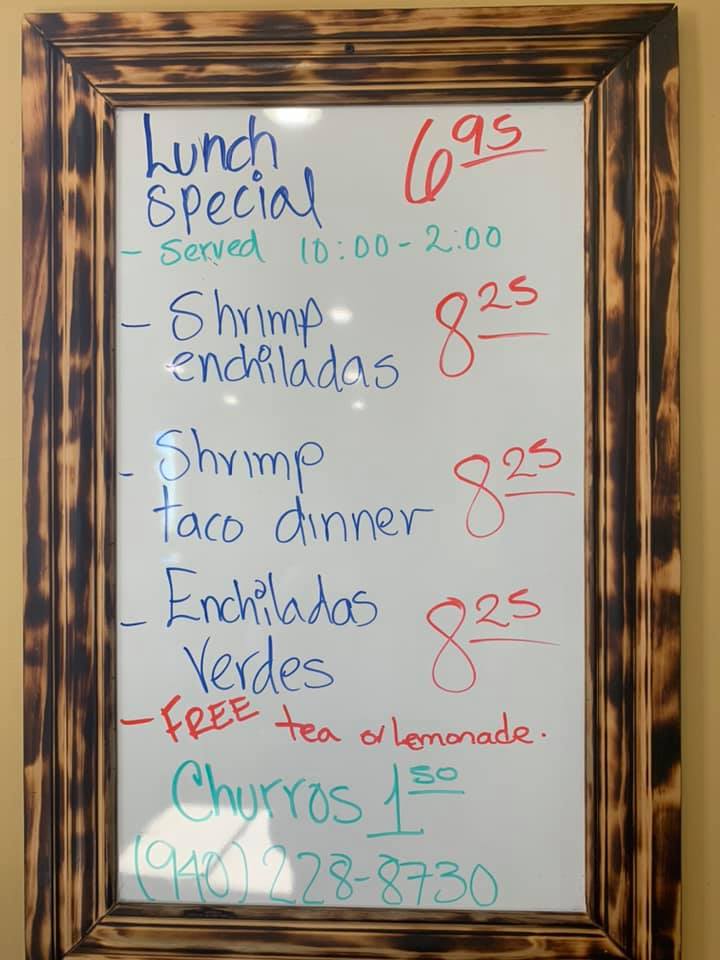 Lunch special 6 95
- Served 10:00 - 2:00
- Shrimp enchiladas 8 25
- Shrimp taco dinner 8 25
- Enchiladas Verdes 8 25
- FREE tea or Lemonade.
Churros 1 50
(940) 228-8730